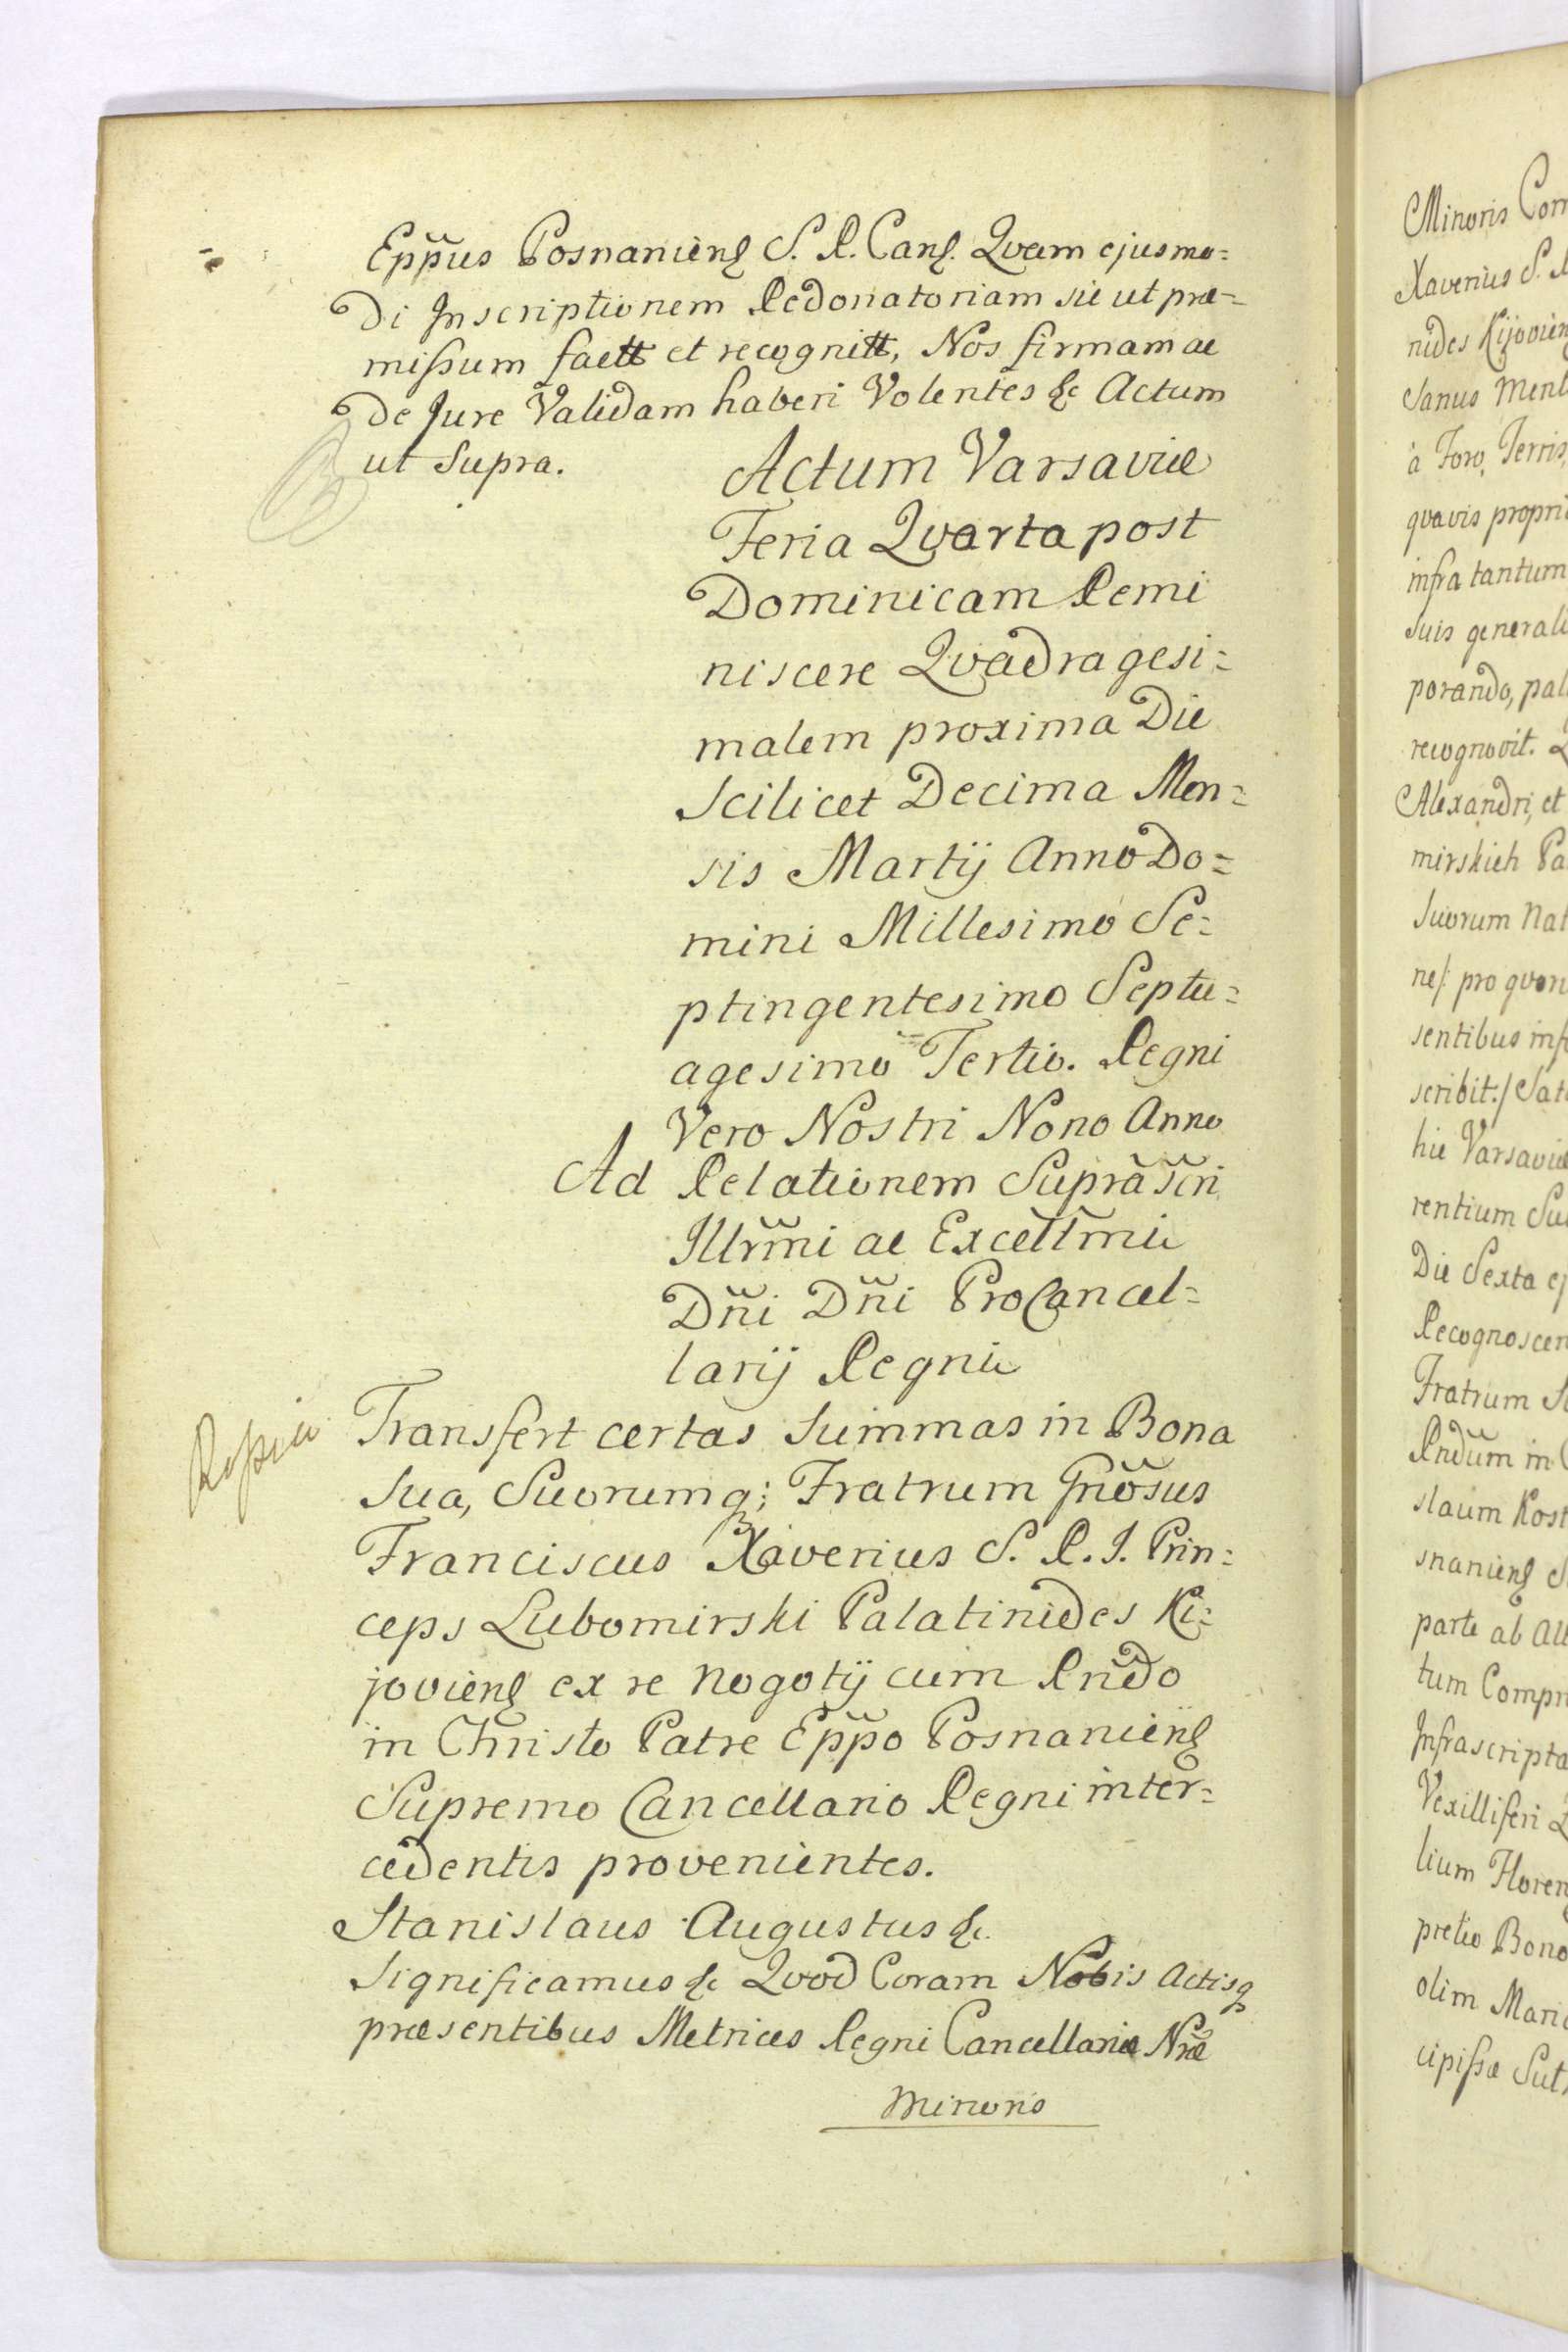 Epp̃us Posnanienſ S. R. Canſ. Qvam ejusmo=
di Inscriptionem Redonatoriam sic ut præ=
mißum factt et recognitt, Nos firmam ac
de Jure Validam haberi Volentes &c Actum
ut Supra.
Actum Varsaviæ
Feria Qvarta post
Dominicam Remi
niscere Qvadragesi=
malem proxima Die
Scilicet Decima Men=
sis Martij Anno Do=
mini Millesimo Se=
ptingentesimo Septu=
agesimo Tertio. Regni
Vero Nostri Nono Anno
Ad Relationem Suprãscri
Illrm̃i ac Excellm̃i
Dñi Dñi ProCancel=
larij Regni
Transfert certas Summas in Bona
Sua, Suorumq; Fratrum Gnõsus
Franciscus Xaverius S. R. I. Prin=
ceps Lubomirski Palatinides Ki=
jovienſ ex re Nogotij cum Rñdo
in Christo Patre Epp̃o Posnanienſ
Supremo Cancellario Regni inter=
cedentis provenientes.
Stanislaus Augustus &c.
Significamus &c Qvod Coram Nobis Actisq
præsentibus Metrices Regni Cancellariæ Nr̃æ
Minoris
Minoris
Xaverius S.
nides Kijovien
Sanus
à Foro, Terris,
qvavis
infra tantum
Suis
porando,
recognovit.
Alexandri, et
mirskich
Suorum
pro
sentibus
scribit./
hic Varsaviæ
rentium
Die Sexta
Fratrum
Rñdum in
slaum
parte ab
tum
Vexilliferi
lium
pretio
olim